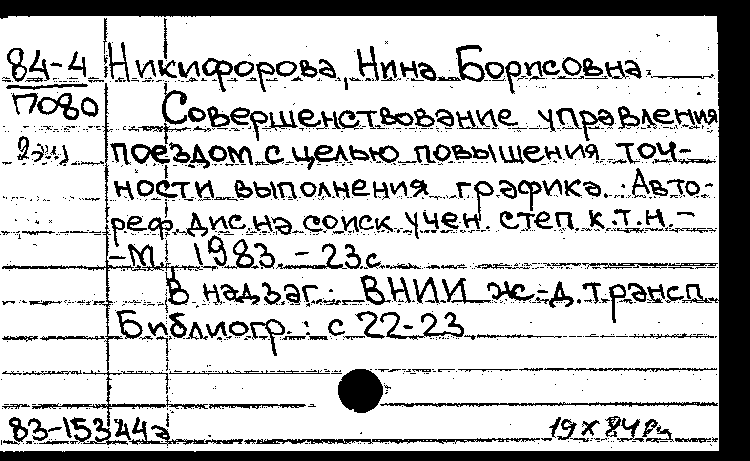 84-4 Никифорова, Нина Борисовна.
7080 Совершенствование управления
2экз поездом с целью повышения точ-
ности выполнения графика. Авто-
реф. дис. на соиск учен. степ к.т.н. -
-М. 1983. - 23с
В надзаг. ВНИИ ж-д. трансп.
Библиогр.: с 22-23
83-15344а 19 X 84